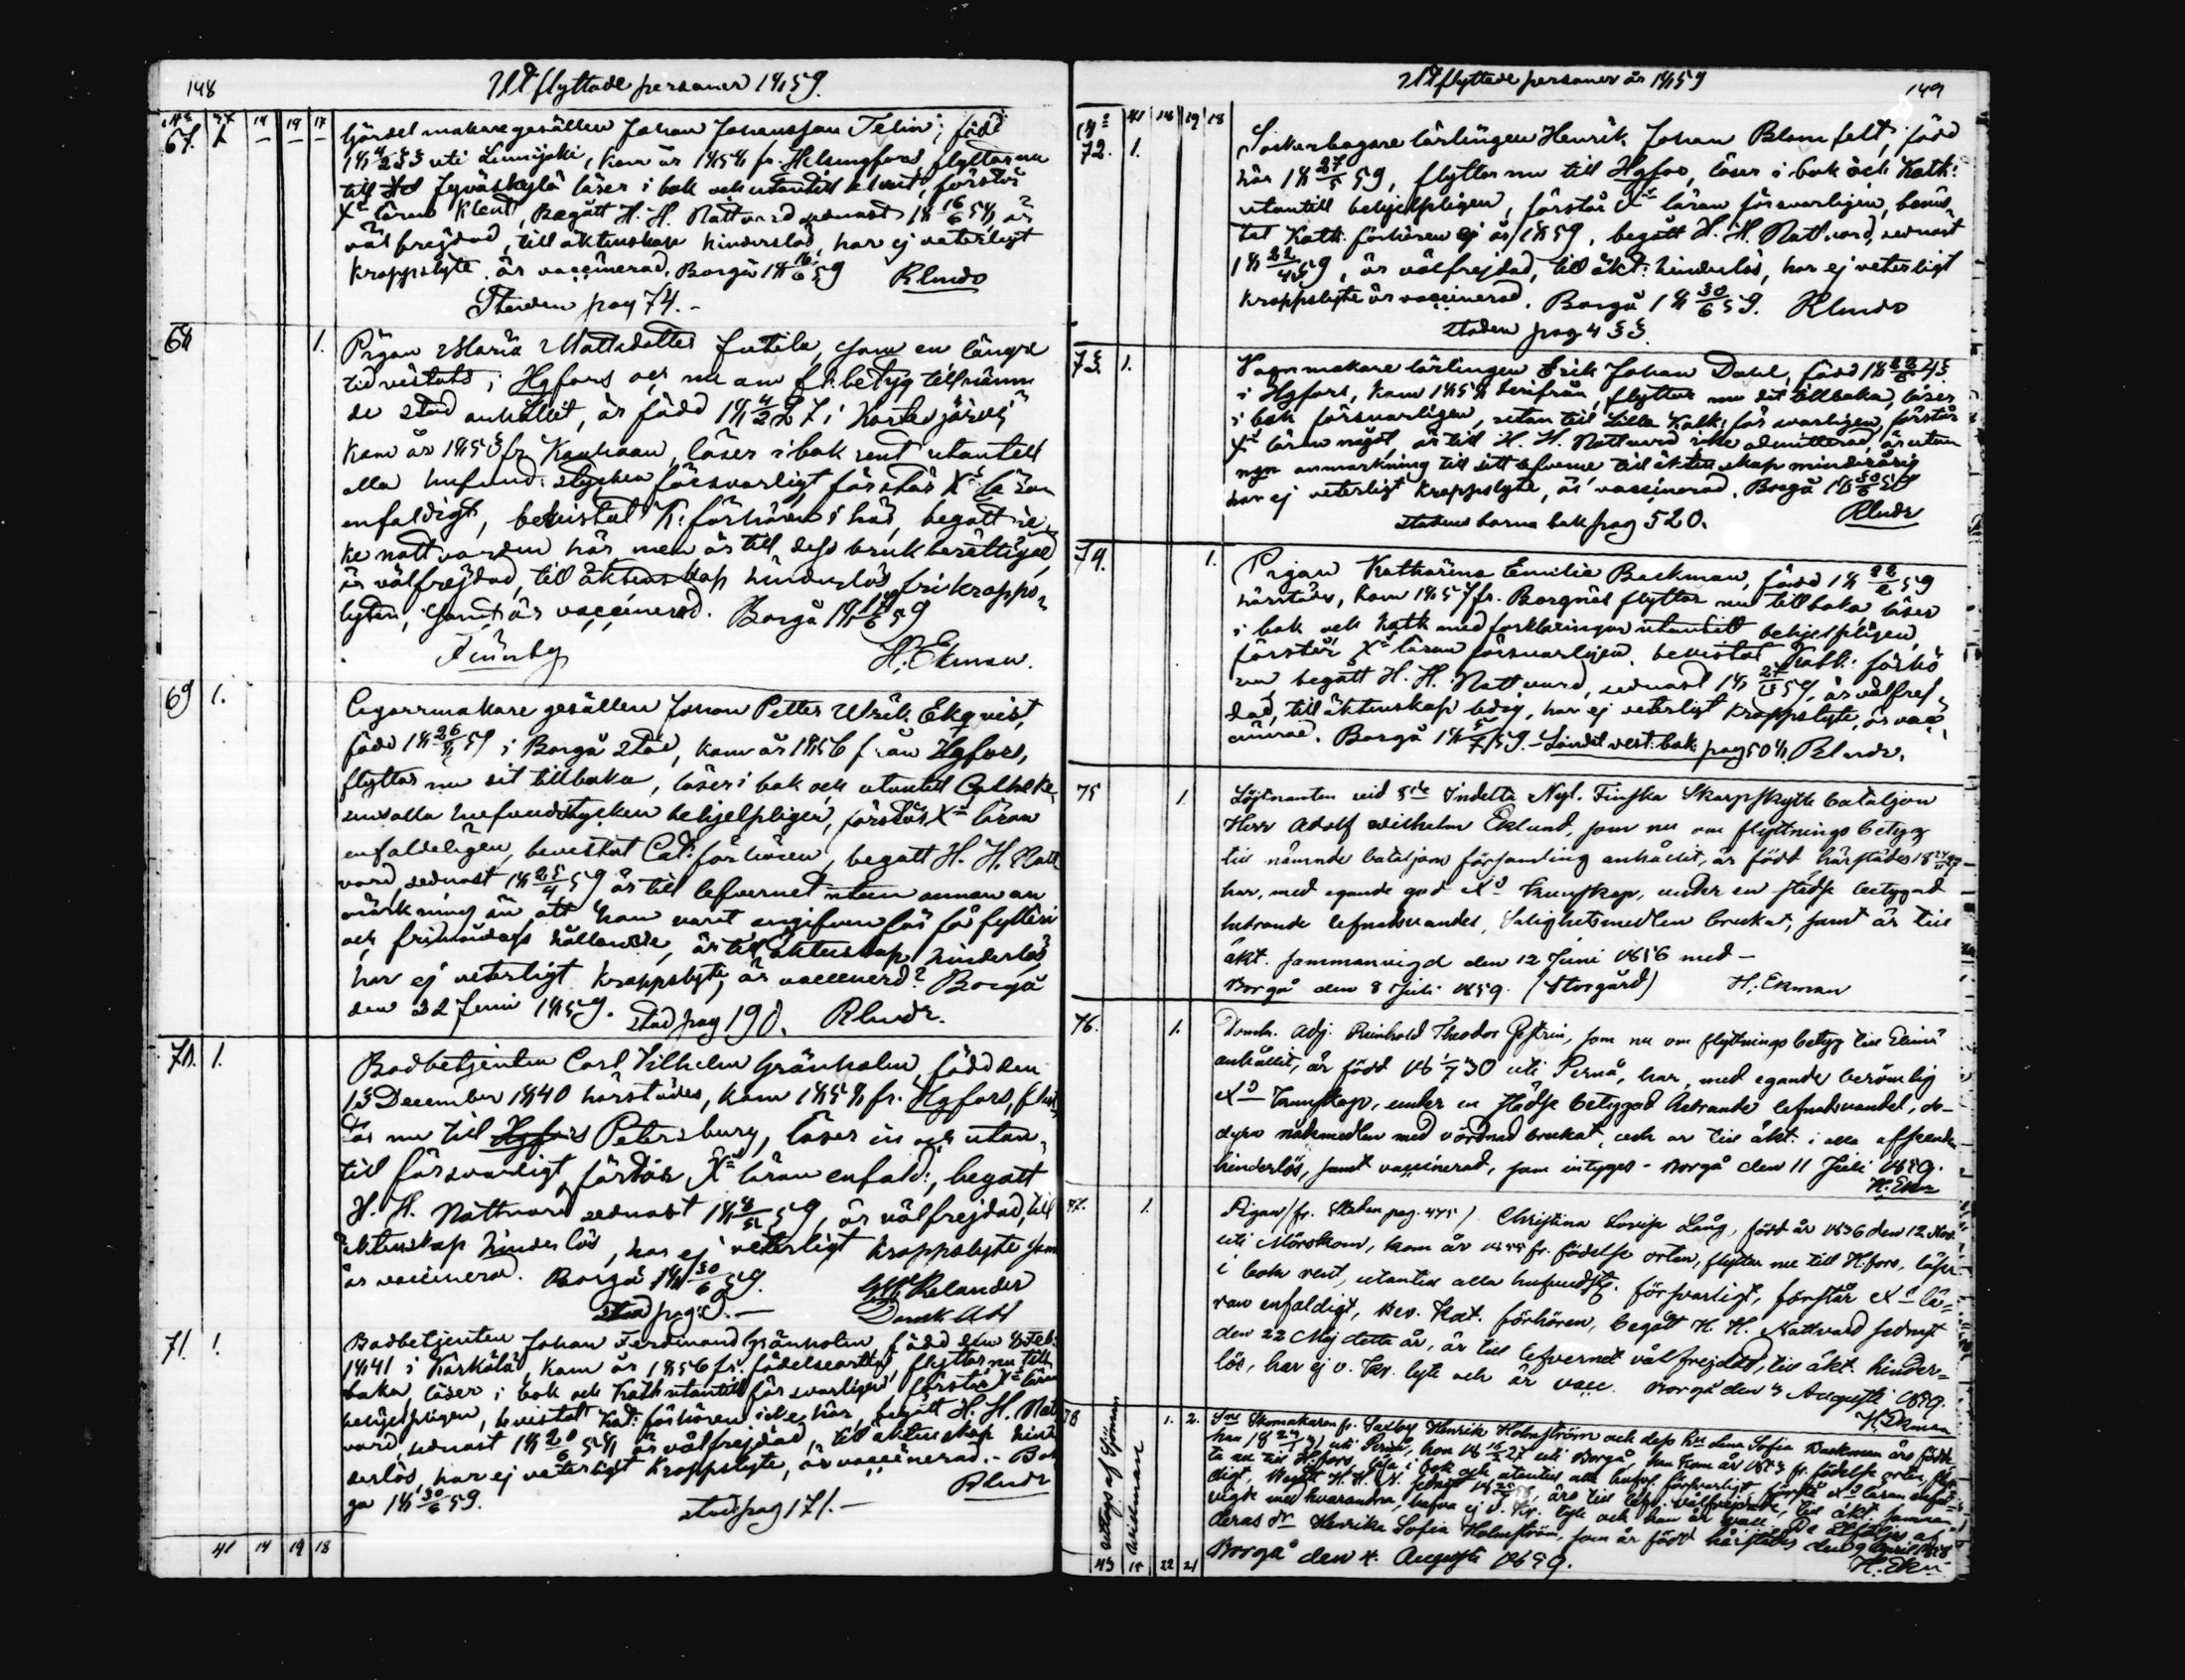 148
Utflyttade personer 1859.
67.
Gördelmakaregesällen Johan Johansson Telin, född
uti Lumijoki, kom år 1858 fr. Helsingfors, flyttar nu
till Jyväskylä läser i bok och utantill klent, förstår
Xs läran klent, Begått H. H. Nattvard sednast 18 16/6 58, är
välfrejdad, till äktenskap hinderslös, har ej veterligt
kroppslyte, är vaccinerad. Borgå 18 16/6 59 Rlnds
Staden pag 74.-
68 1.
Pigan Maria Mattsdotter Jutila, som en längre
tid vistats i Hgfors och nu om fl: betyg till nämn
de stad anhållit, är född 18 4/2 27 i Kortesjärvi
kom år 1855 fr Kauhava, läser i bok rent utantill
alla hufvud: stycken försvarligt förstår Xs läran
enfaldigt, bevistat K: förhören här, begått ic
ke nattvarden här, men är till dess bruk berättigad
är välfrejdad, till äktenskap hinderslös, fri kropps
lyten, samt är vaccinerad. Borgå 18 59
H. Ekman.
69 1.
Cigarrmakare gesällen Johan Petter Ulrik Ekqvist,
född 18 i Borgå Stad, kom år 1856 från Hgfors,
flyttar nu dit tillbaka, läser i bok och utantill Catheke
sens alla hufvudstycken behjelpligen, förstår Xs läran
enfaldeligen, bevistat Cat: förhören, begått H. H. Natt
vard, sednast 18 25/4 59 är till lefvernet utan annan an
märkning än att han varit angifven för fylleri
och frimåndags hållande, är till äktenskap hinderslös,
har ej veterligt kroppslyte, är vaccinerd? Borgå
den 22 Juni 1859. Stad pag 190. Rlndr.
70. 1.
Badbetjenten Carl Vilhelm Grönholm, född den
15 December 1840 härstädes, kom 1858 fr. Hgfors, flyt
tar nu till Petersburg, läser in och utan
till försvarligt, förstår Xs läran enfald:, begått
H. H. Nattvard sednast 18 59, är välfrejdad, till
äktenskap hinderslös, har ej veterligt kroppslyte samt
är vaccinerad. Borgå 18 30/6 59.
Relander
Domk. Adj
71. 1.
Badbetjenten Johan Ferdinand Grönholm, född den 8 Feb:
1841 i Kärkölä, kom år 1856 fr. födelseorten, flyttar nu till
baka, läser i bok och Kath utantill försvarligen, förstår Xs läran
behjelpligen, bevistat Kat: förhören icke här, begått H. H. Natt
vard, sednast 18 20/6 58, är välfrejdad, till äktenskap hin
derslös, har ej veterligt kroppslyte, är vaccinerad. - Bor
gå 18 30/6 59. Rlndr
stad pag 171.-
41 14 19 18
Utflyttade personer år 1859
149
41 14 19 18
72. 1.
Sockerbagare lärlingen Henrik Johan Blomfelt, född
här 18 27/5 59, flyttar nu till Hgfos, läser i bok och Kath:
utantill behjelpligen, förstår Xs läran försvarligen, bevis
tat Kath. förhören ej år 1859, begått H. H. Nattvard, sednast
18 22/4 59, är välfrejdad, till äkt: hinderslös, har ej veterligt
kroppslyte är vaccinerad. Borgå 18 30/6 59. Rlnds
staden pag 455.
73. 1.
Vagnmakare lärlingen Erik Johan Dahl, född 18
i Hgfors, kom 1858 derifrån, flyttar nu dit tillbaka, läser
i bok försvarligen, utan till Lilla Kath: försvarligen, förstår
Xs läran något, är till H. H. Nattvard icke admitterad, är utan
ngn anmärkning till sitt lefverne till äktenskap minderårig
har ej veterligt kroppslyte, är vaccinerad. Borgå 18 30/6 59
stadens barna bok pag 520. Rlndr
74. 1.
Pigan Katharina Emilia Backman, född 18 59
härstädes, kom 1857 fr. Borgnäs flyttar nu tillbaka, läser
i bok och kath med förklaringar utantill behjelpligen,
förstår Xs läran försvarligen, bevistat Kath: förhö
ren begått H. H. Nattvard, sednast 18 59, är välfrej
dad, till äktenskap ledig, har ej veterligt kroppslyte, är vac
cinerad. Borgå 18 5/7 59. - Landet vest: bok pag 508. Rlndr.
75 1.
Löjtnanten vid 8de Indelta Nyl. Finska Skarpskytte bataljon
Herr Adolf Wilhelm Eklund, som nu om flyttningsbetyg
till nämnde bataljons församling anhållit, är född härstädes 18
har, med egande god Xs kunskap, under en städse betygad
hedrande lefnadsvandel, Salighetsmedlen brukat, samt är till
äkt. sammanvigd den 12 Juni 1856 med —
Borgå den 8 Juli 1859. (Storgård) H. Ekman
76. 1.
Domk. Adj. Reinhold Theodor Gestrin, som nu om flyttningsbetyg till Elimä
anhållit, är född 18 1/7 30 uti Pernå, har, med egande berömlig
Xs kunskap, under en städse betygad hedrande lefnadsvandel, de
dyra nådemedlen med vördnad brukat, och är till äkt. i alla afseenden
hinderslös, samt vaccinerad, som intygas - Borgå den 11 Juli 1859.
H. Ekm
77. 1.
Pigan (fr. Staden pag. 475) Christina Lovisa Lång, född år 1836 den 12 Nov.
uti Mörskom, kom år 1855 fr. födelse orten, flyttar nu till H.fors, läser
i bok rent, utantill alla hufvudst. försvarligt, förstår Xs lä=
ran enfaldigt, Bev. Kat. förhören, begått H. H. Nattvard sednast
den 22 Maj detta år, är till lefvernet välfrejdad, till äkt. hinder=
lös, har ej v. kr. lyte och är vacc. Borgå den 3 Augusti 1859.
H. Ekman
78 1. 2.
Skomakaren fr. Saxby Henrik Holmström och dess hu Lena Sofia Backman äro födde
han 18 uti Pernå, hon 18 27 uti Borgå, han kom år fr. födelse orten, flyt
ta nu till H.fors, läsa i bok och utantill alla hufvs. försvarligt, förstå Xs läran enfal
digt, Begått H. H. N. sednast, äro till lefv. välfrejdade, till äkt. samman
vigde med hvarandra, hafva ej v. kr. lyte och han är vacc. De åtföljas af
deras dr Henrika Sofia Holmström, som är född härstädes den 9 April 1858
Borgå den 4. Augusti 1859. H. Ekm
43 15 22 21